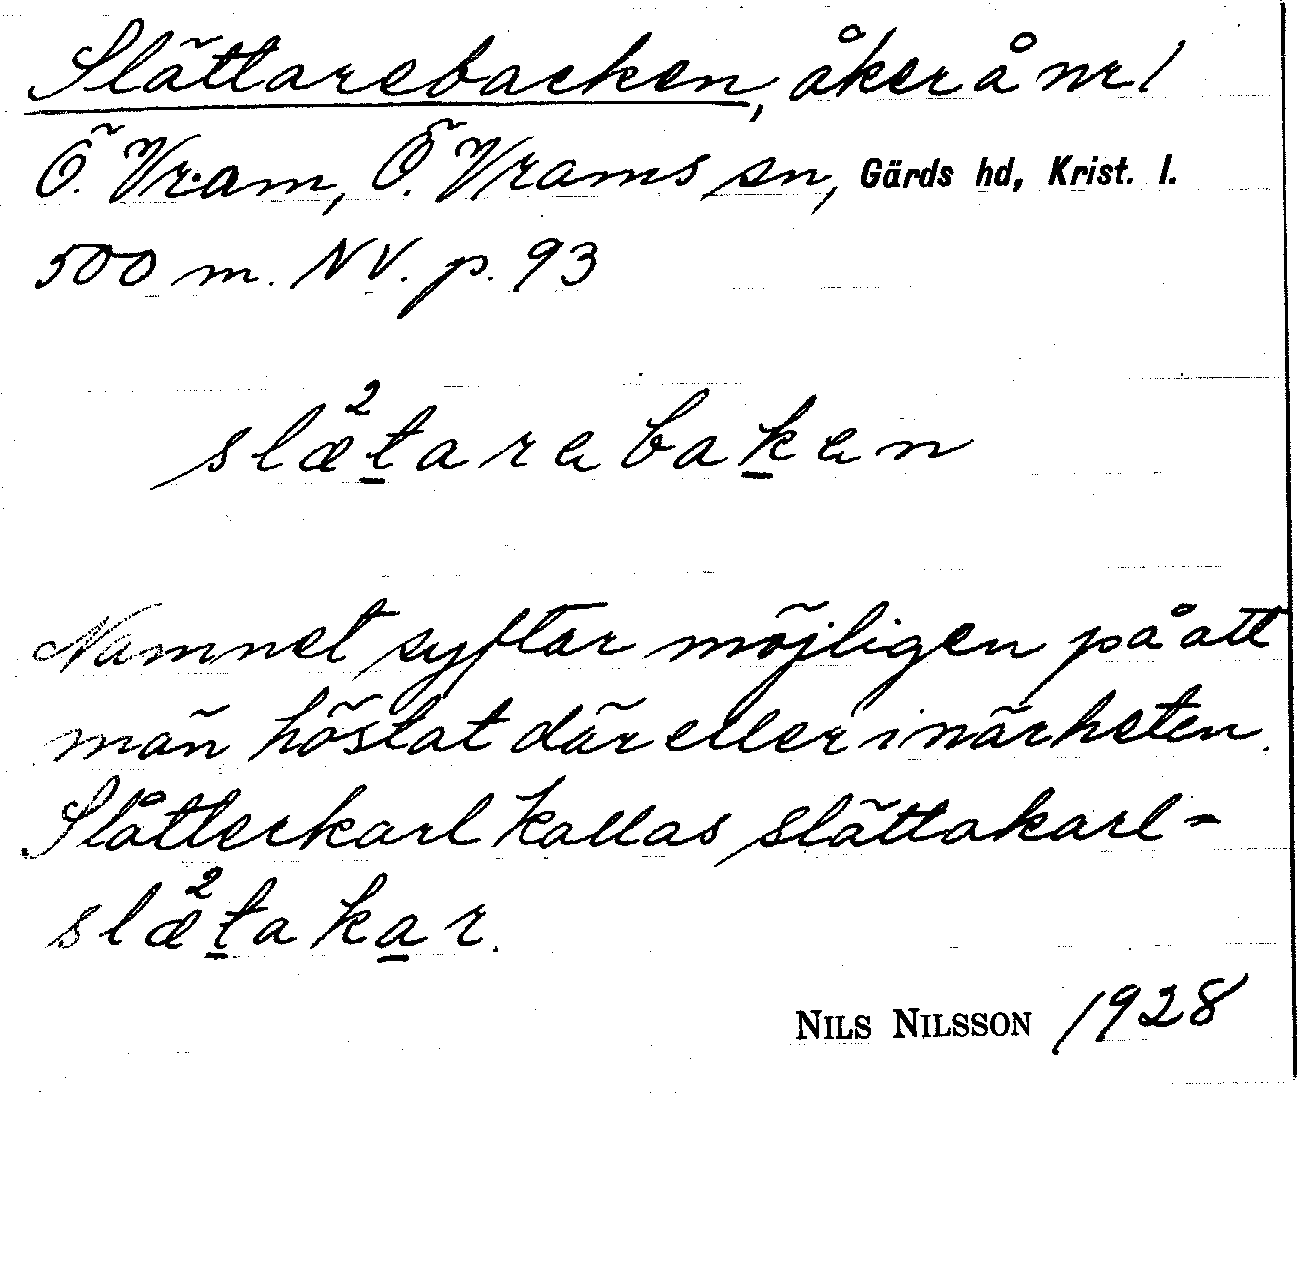 Slättarebacken, åker å nr 1
Ö. Vram, Ö. Vrams sn, Gärds hd, Krist. l.
500 m. NV. p. 93
slæ²tarebaken
Namnet syftar möjligen på att
man höstat där eller i närheten.
Slåtterkarl kallas slättakarl -
slæ²takar.
NILS NILSSON 1928